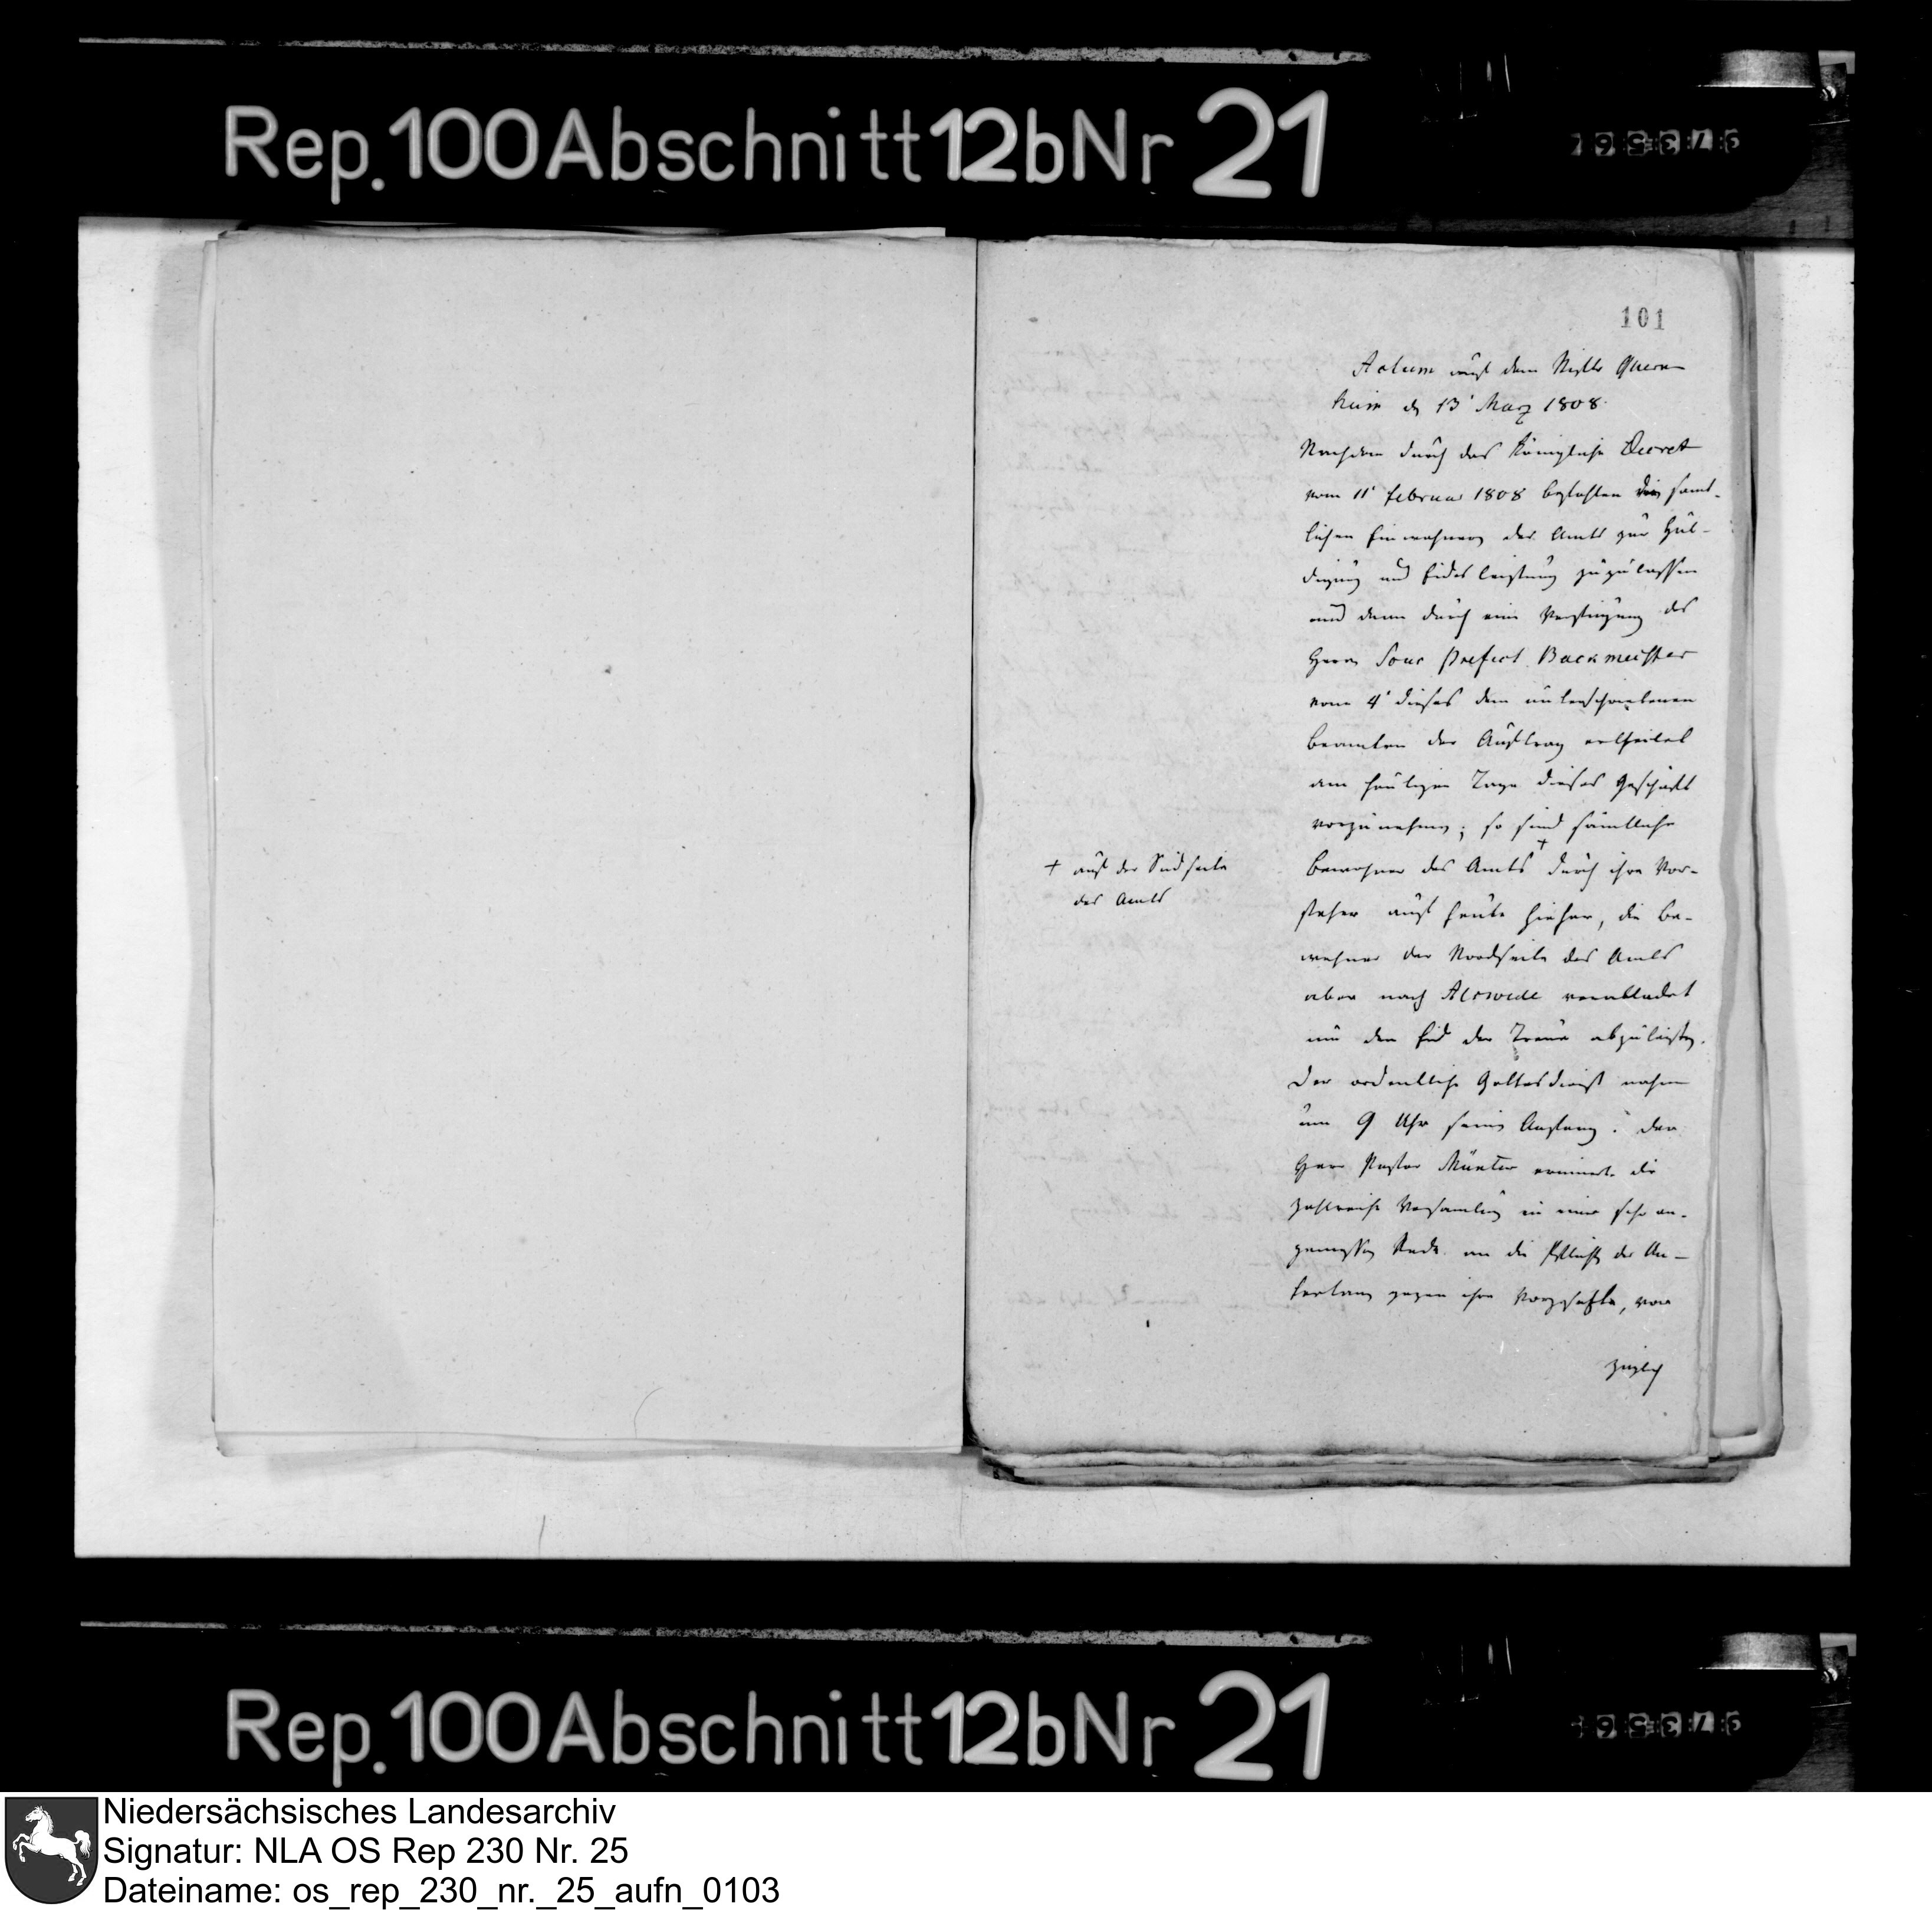 Rep. 100 Abschnitt 12b Nr 21
101
Actum auf dem Stifte Quern
heim d 13t Marz 1808.
Nachdem durch das Königliche Decret
vom 11t Februar 1808 befohlen die samt-
lichen Einwohner des Amts zur Hul-
digung und Eides leistung zuzulassen
und denn durch eine Verfügung des
Herrn Sous Prefect Backmeister
vom 4t dieses dem unterschriebenen
Beamten der Auftrag ertheilet
am heutigen Tage dieses Geschäft
vorzunehmen; so sind sämtliche
Bewohner des Amts + durch ihre Vor-
+ auf der Südseite
des Amts
steher auf heute hieher, die Be-
wohner der Nordseite des Amts
aber nach Alswede verabladet
um den Eid der Treue abzuleisten.
Der ordentliche Gottesdienst nahm
um 9 Uhr seinen Anfang. Der
Herr Pastor Münter erinnerte die
zahlreiche Versamlung in einer sehr an-
gemessen Rede an die Pflicht der Un-
terthanen gegen ihre Vorgesetzte,
Rep. 100 Abschnitt 12b Nr 21
Niedersächsisches Landesarchiv
Signatur: NLA OS Rep 230 Nr. 25
Dateiname: os_rep_230_nr._25_aufn_0103